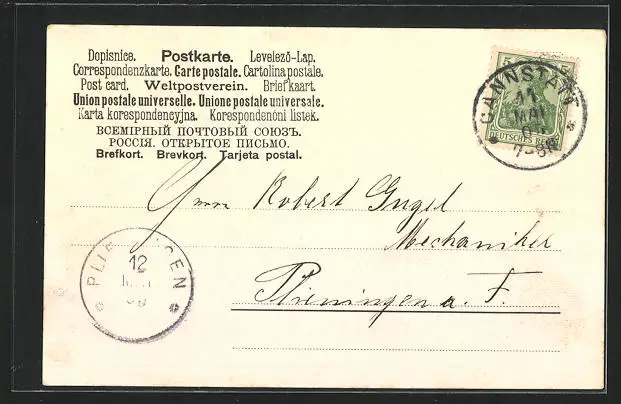 Dopisnice. Postkarte. Levelező-Lap.
Correspondenzkarte. Carte postale. Cartolina postale.
Post card. Weltpostverein. Briefkaart.
Union postale universelle. Unione postale universale.
Karta korespondencyjna. Korespondenční listek.
ВСЕМІРНЫЙ ПОЧТОВЫЙ СОЮЗЪ.
РОССІЯ. ОТКРЫТОЕ ПИСЬМО.
Brefkort. Brevkort. Tarjeta postal.
5 5
DEUTSCHES REICH
CANNSTATT
11
MAI
7-8N
Herrn Robert Engel
Mechaniker
Plieningen a. F.
PLIENINGEN
12
MAI